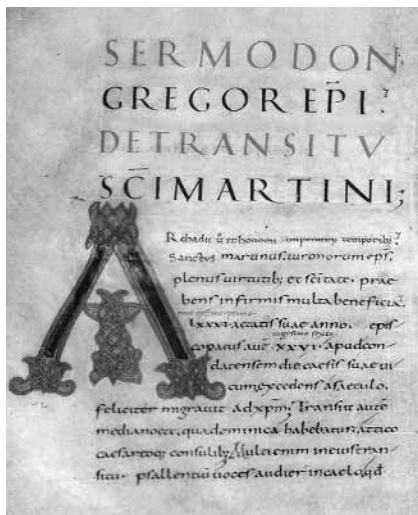 SERMO DON
GREGOR EPI
DE TRANSITV
SCI MARTINI;
A
Rchadii ū et honorii imperatorū temporib;
Sanctus martinus turonorum eps,
plenus uirtutib; et scītate. prae
bens infirmis multa beneficia,
lxxxi. aetatis suae anno. epis
copatus aūt xxvi. apud con
datensem diocaesis suae ui
cum excedens a saeculo,
feliciter migrauit ad xpm; Transiit autē
media nocte, quae dominica habebatur, attico
caesarioq; consulib; Multi enim in eius tran
situ psallentiū uoces audier in caelo, qd